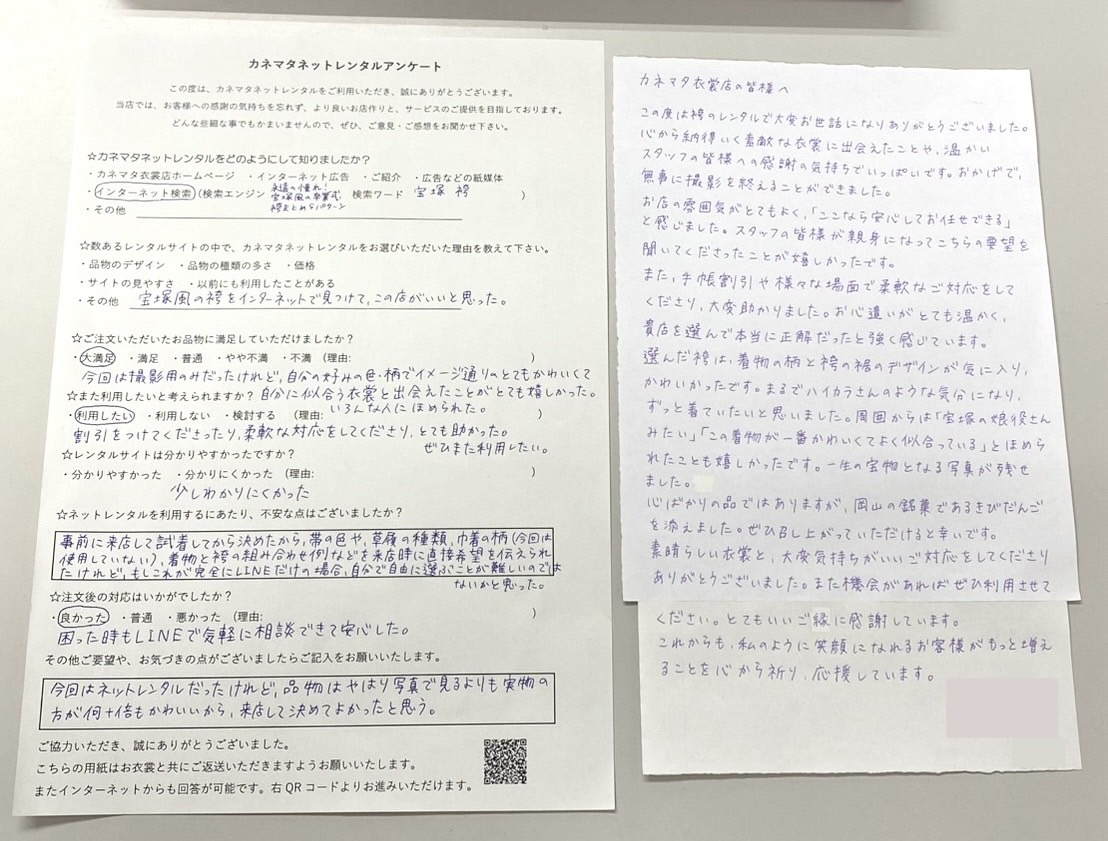 カネマタネットレンタルアンケート
この度は、カネマタネットレンタルをご利用いただき、誠にありがとうございます。
当店では、お客様への感謝の気持ちを忘れず、より良いお店作りと、サービスのご提供を目指しております。
どんな些細な事でもかまいませんので、ぜひ、ご意見・ご感想をお聞かせ下さい。
☆カネマタネットレンタルをどのようにして知りましたか？
・カネマタ衣裳店ホームページ ・インターネット広告 ・ご紹介 ・広告などの紙媒体
・インターネット検索 (検索エンジン 永遠の憧れ！ 宝塚風の卒業式 袴まとめ&パターン 検索ワード 宝塚 袴 )
・その他
☆数あるレンタルサイトの中で、カネマタネットレンタルをお選びいただいた理由を教えて下さい。
・品物のデザイン ・品物の種類の多さ ・価格
・サイトの見やすさ ・以前にも利用したことがある
・その他 宝塚風の袴をインターネットで見つけて、この店がいいと思った。
☆ご注文いただいたお品物に満足していただけましたか？
・大満足 ・満足 ・普通 ・やや不満 ・不満 (理由: )
今回は撮影用のみだったけれど、自分の好みの色・柄でイメージ通りのとてもかわいくて
☆また利用したいと考えられますか？ 自分に似合う衣裳と出会えたことがとても嬉しかった。
・利用したい ・利用しない ・検討する (理由: いろんな人にほめられた。 )
割引をつけてくださったり、柔軟な対応をしてくださり、とても助かった。
ぜひまた利用したい。
☆レンタルサイトは分かりやすかったですか？
・分かりやすかった ・分かりにくかった (理由: )
少しわかりにくかった
☆ネットレンタルを利用するにあたり、不安な点はございましたか？
事前に来店して試着してから決めたから、帯の色や、草履の種類、巾着の柄(今回は
使用していない)、着物と袴の組み合わせ例などを来店時に直接希望を伝えられ
たけれど、もしこれが完全にLINEだけの場合、自分で自由に選ぶことが難しいのでは
ないかと思った。
☆注文後の対応はいかがでしたか？
・良かった ・普通 ・悪かった (理由: )
困った時もLINEで気軽に相談できて安心した。
その他ご要望や、お気づきの点がございましたらご記入をお願いいたします。
今回はネットレンタルだったけれど、品物はやはり写真で見るよりも実物の
方が何十倍もかわいいから、来店して決めてよかったと思う。
ご協力いただき、誠にありがとうございました。
こちらの用紙はお衣裳と共にご返送いただきますようお願いいたします。
またインターネットからも回答が可能です。右QRコードよりお進みいただけます。
カネマタ衣裳店の皆様へ
この度は袴のレンタルで大変お世話になりありがとうございました。
心から納得いく素敵な衣裳に出会えたことや、温かい
スタッフの皆様への感謝の気持ちでいっぱいです。おかげで、
無事に撮影を終えることができました。
お店の雰囲気がとてもよく、「ここなら安心してお任せできる」
と感じました。スタッフの皆様が親身になってこちらの要望を
聞いてくださったことが嬉しかったです。
また、手帳割引や様々な場面で柔軟なご対応をして
くださり、大変助かりました。お心遣いがとても温かく、
貴店を選んで本当に正解だったと強く感じています。
選んだ袴は、着物の柄と袴の裾のデザインが気に入り、
かわいかったです。まるでハイカラさんのような気分になり、
ずっと着ていたいと思いました。周囲からは「宝塚の娘役さん
みたい」「この着物が一番かわいくてよく似合っている」とほめら
れたことも嬉しかったです。一生の宝物となる写真が残せ
ました。
心ばかりの品ではありますが、岡山の銘菓であるきびだんご
を添えました。ぜひ召し上がっていただけると幸いです。
素晴らしい衣裳と、大変気持ちがいいご対応をしてくださり
ありがとうございました。また機会があればぜひ利用させて
ください。とてもいいご縁に感謝しています。
これからも、私のように笑顔になれるお客様がもっと増え
ることを心から祈り、応援しています。